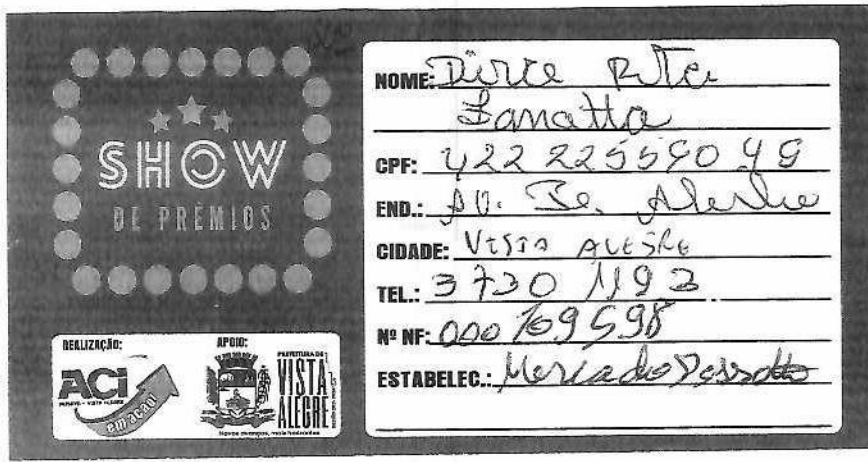 SHOW
DE PRÊMIOS
REALIZAÇÃO:
ACI
em ação!
APOIO:
PREFEITURA DE
VISTA
ALEGRE
NOME: Dirce Rita
Zanatta
CPF:
END.: AV.
CIDADE: VISTA ALEGRE
TEL.: 3730 1193
Nº NF: 000169598
ESTABELEC.: Mercado